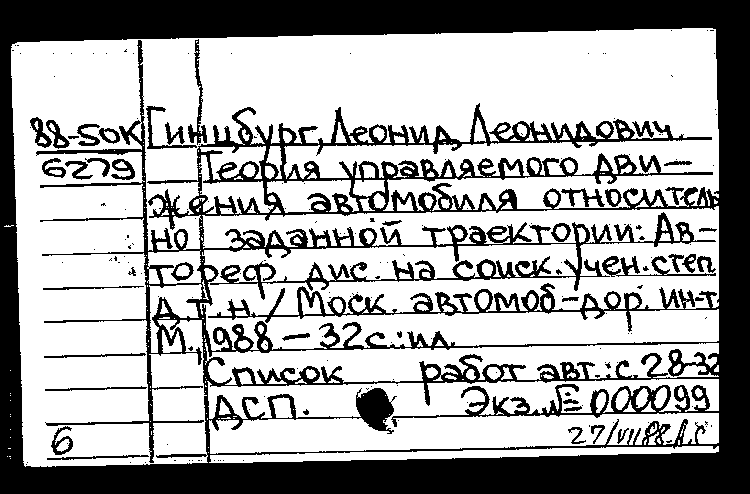 88-50К Гинцбург, Леонид Леонидович.
6279 Теория управляемого дви-
жения автомобиля относитель
но заданной траектории: Ав-
тореф. дис. на соиск. учен. степ
д.т.н. / Моск. автомоб.-дор. ин-т.
М., 1988. – 32 с.: ил.
Список работ авт.: с. 28-32
ДСП. Экз. № 000099
6 27/VII88. А.С